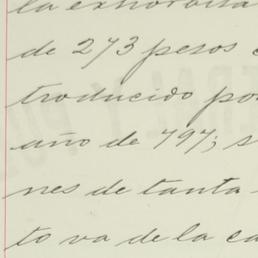 la exhorbita
de 273 pesos c
troducido por
año de 797; s
nes de tanta
to va de la ca